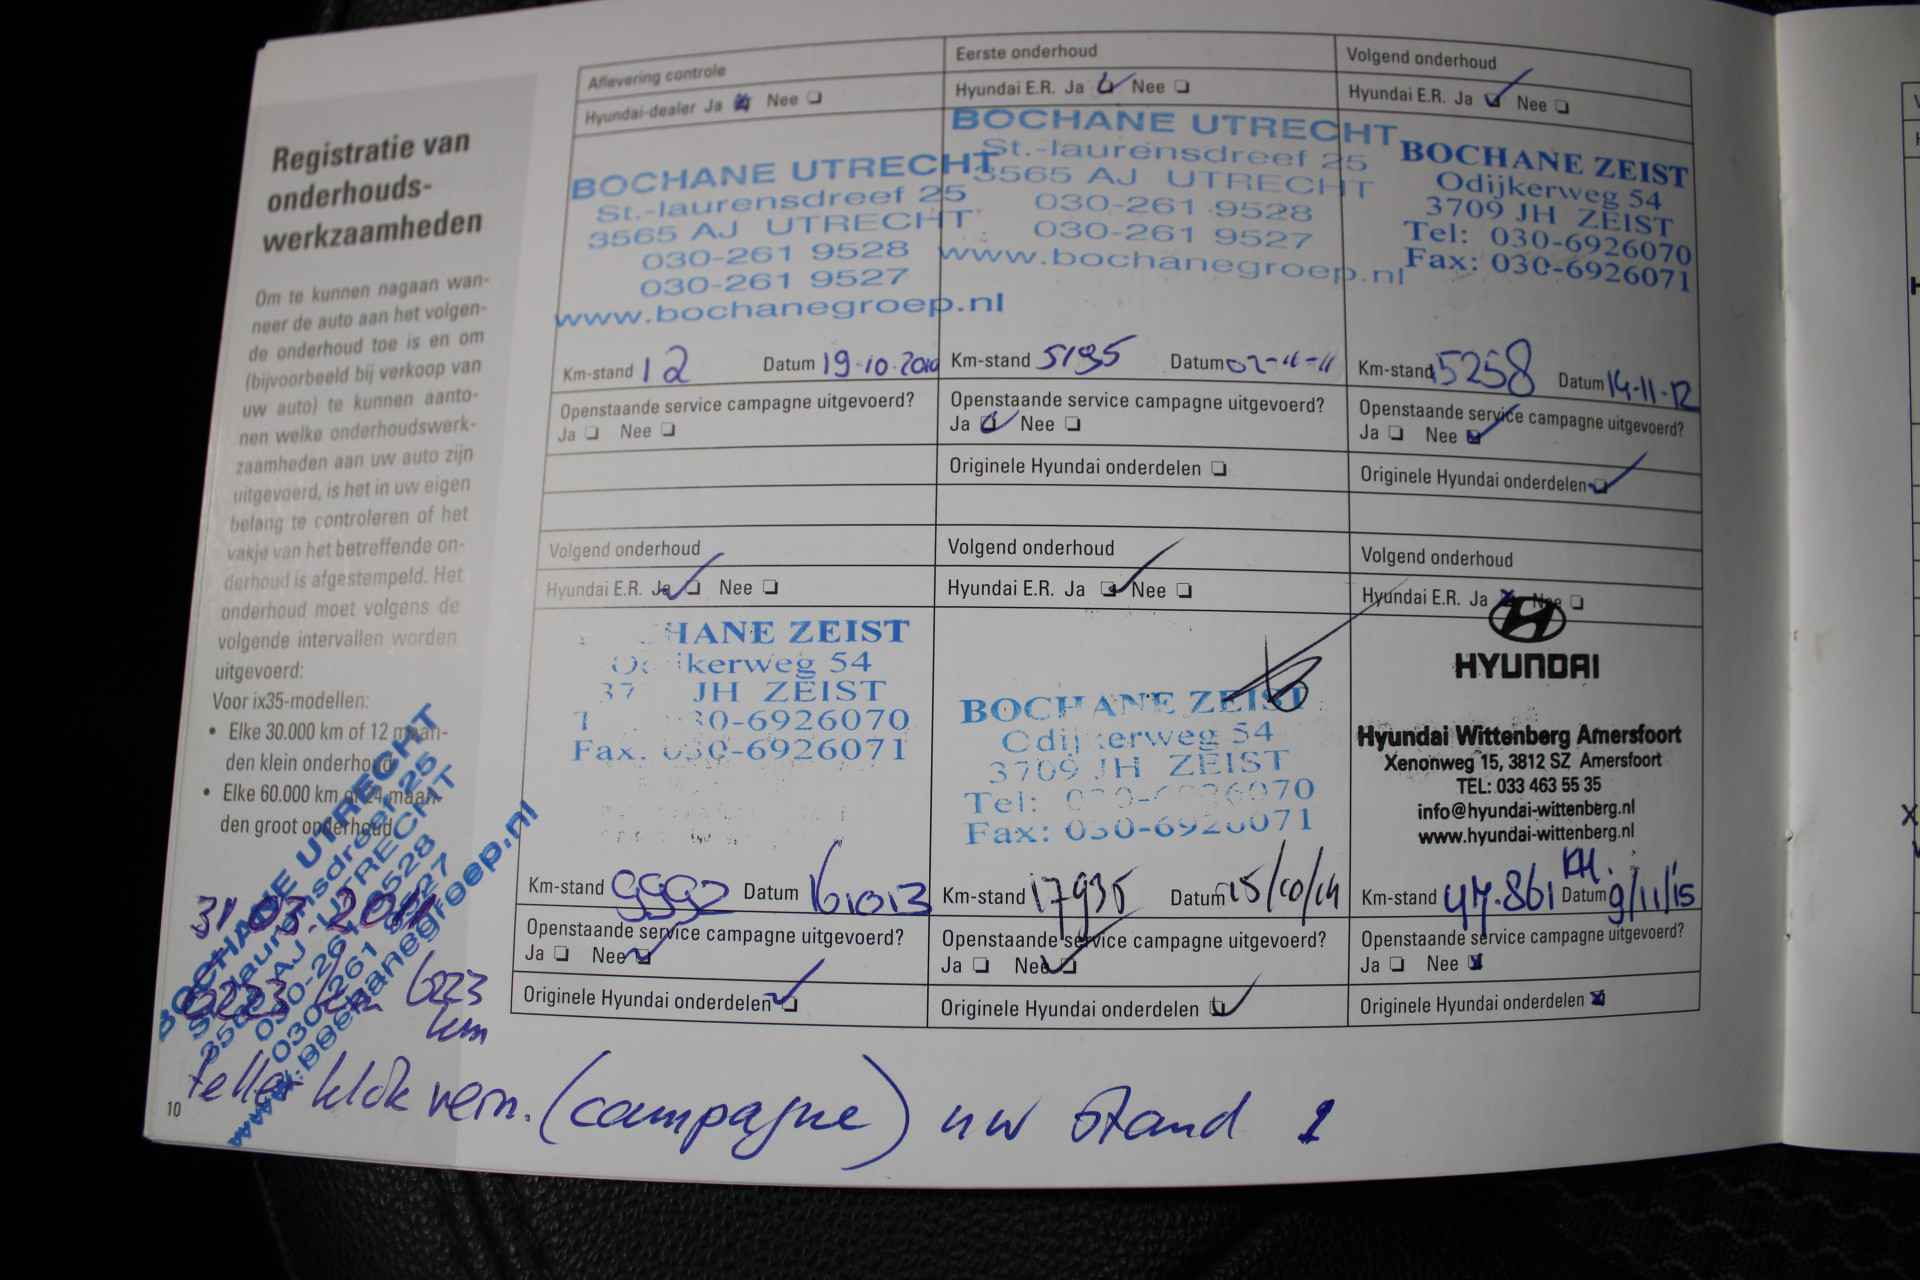 Registratie van
onderhouds-
werkzaamheden
Om te kunnen nagaan wan-
neer de auto aan het volgen-
de onderhoud toe is en om
(bijvoorbeeld bij verkoop van
uw auto) te kunnen aanto-
nen welke onderhoudswerk-
zaamheden aan uw auto zijn
uitgevoerd, is het in uw eigen
belang te controleren of het
vakje van het betreffende on-
derhoud is afgestempeld. Het
onderhoud moet volgens de
volgende intervallen worden
uitgevoerd:
Voor ix35-modellen:
• Elke 30.000 km of 12 maan-
den klein onderhoud
• Elke 60.000 km of 24 maan-
den groot onderhoud
BOCHANE UTRECHT
St.-laurensdreef 25
3565 AJ UTRECHT
030-261 9528
030-261 9527
www.bochanegroep.nl
31.03.2011
6223 km 6223
km
teller klok vern. (campagne) nw stand 1
10
Aflevering controle
Hyundai-dealer Ja Nee
BOCHANE UTRECHT
St.-laurensdreef 25
3565 AJ UTRECHT
030-261 9528
030-261 9527
www.bochanegroep.nl
Km-stand 12 Datum 19-10-2010
Openstaande service campagne uitgevoerd?
Ja Nee
Eerste onderhoud
Hyundai E.R. Ja Nee
BOCHANE UTRECHT
St.-laurensdreef 25
3565 AJ UTRECHT
030-261 9528
030-261 9527
www.bochanegroep.nl
Km-stand 5195 Datum 02-11-11
Openstaande service campagne uitgevoerd?
Ja Nee
Originele Hyundai onderdelen
Volgend onderhoud
Hyundai E.R. Ja Nee
BOCHANE ZEIST
Odijkerweg 54
3709 JH ZEIST
Tel: 030-6926070
Fax: 030-6926071
Km-stand 15258 Datum 14-11-12
Openstaande service campagne uitgevoerd?
Ja Nee
Originele Hyundai onderdelen
Volgend onderhoud
Hyundai E.R. Ja Nee
HANE ZEIST
Odijkerweg 54
37 JH ZEIST
T 30-6926070
Fax. 030-6926071
Km-stand 9992 Datum 161013
Openstaande service campagne uitgevoerd?
Ja Nee
Originele Hyundai onderdelen
Volgend onderhoud
Hyundai E.R. Ja Nee
BOCHANE ZEIST
Odijkerweg 54
3709 JH ZEIST
Tel: 030-6926070
Fax: 030-6926071
Km-stand 17935 Datum 15/10/14
Openstaande service campagne uitgevoerd?
Ja Nee
Originele Hyundai onderdelen
Volgend onderhoud
Hyundai E.R. Ja Nee
HYUNDAI
Hyundai Wittenberg Amersfoort
Xenonweg 15, 3812 SZ Amersfoort
TEL: 033 463 55 35
info@hyundai-wittenberg.nl
www.hyundai-wittenberg.nl
KM.
Km-stand 47.861 Datum 9/11/15
Openstaande service campagne uitgevoerd?
Ja Nee
Originele Hyundai onderdelen